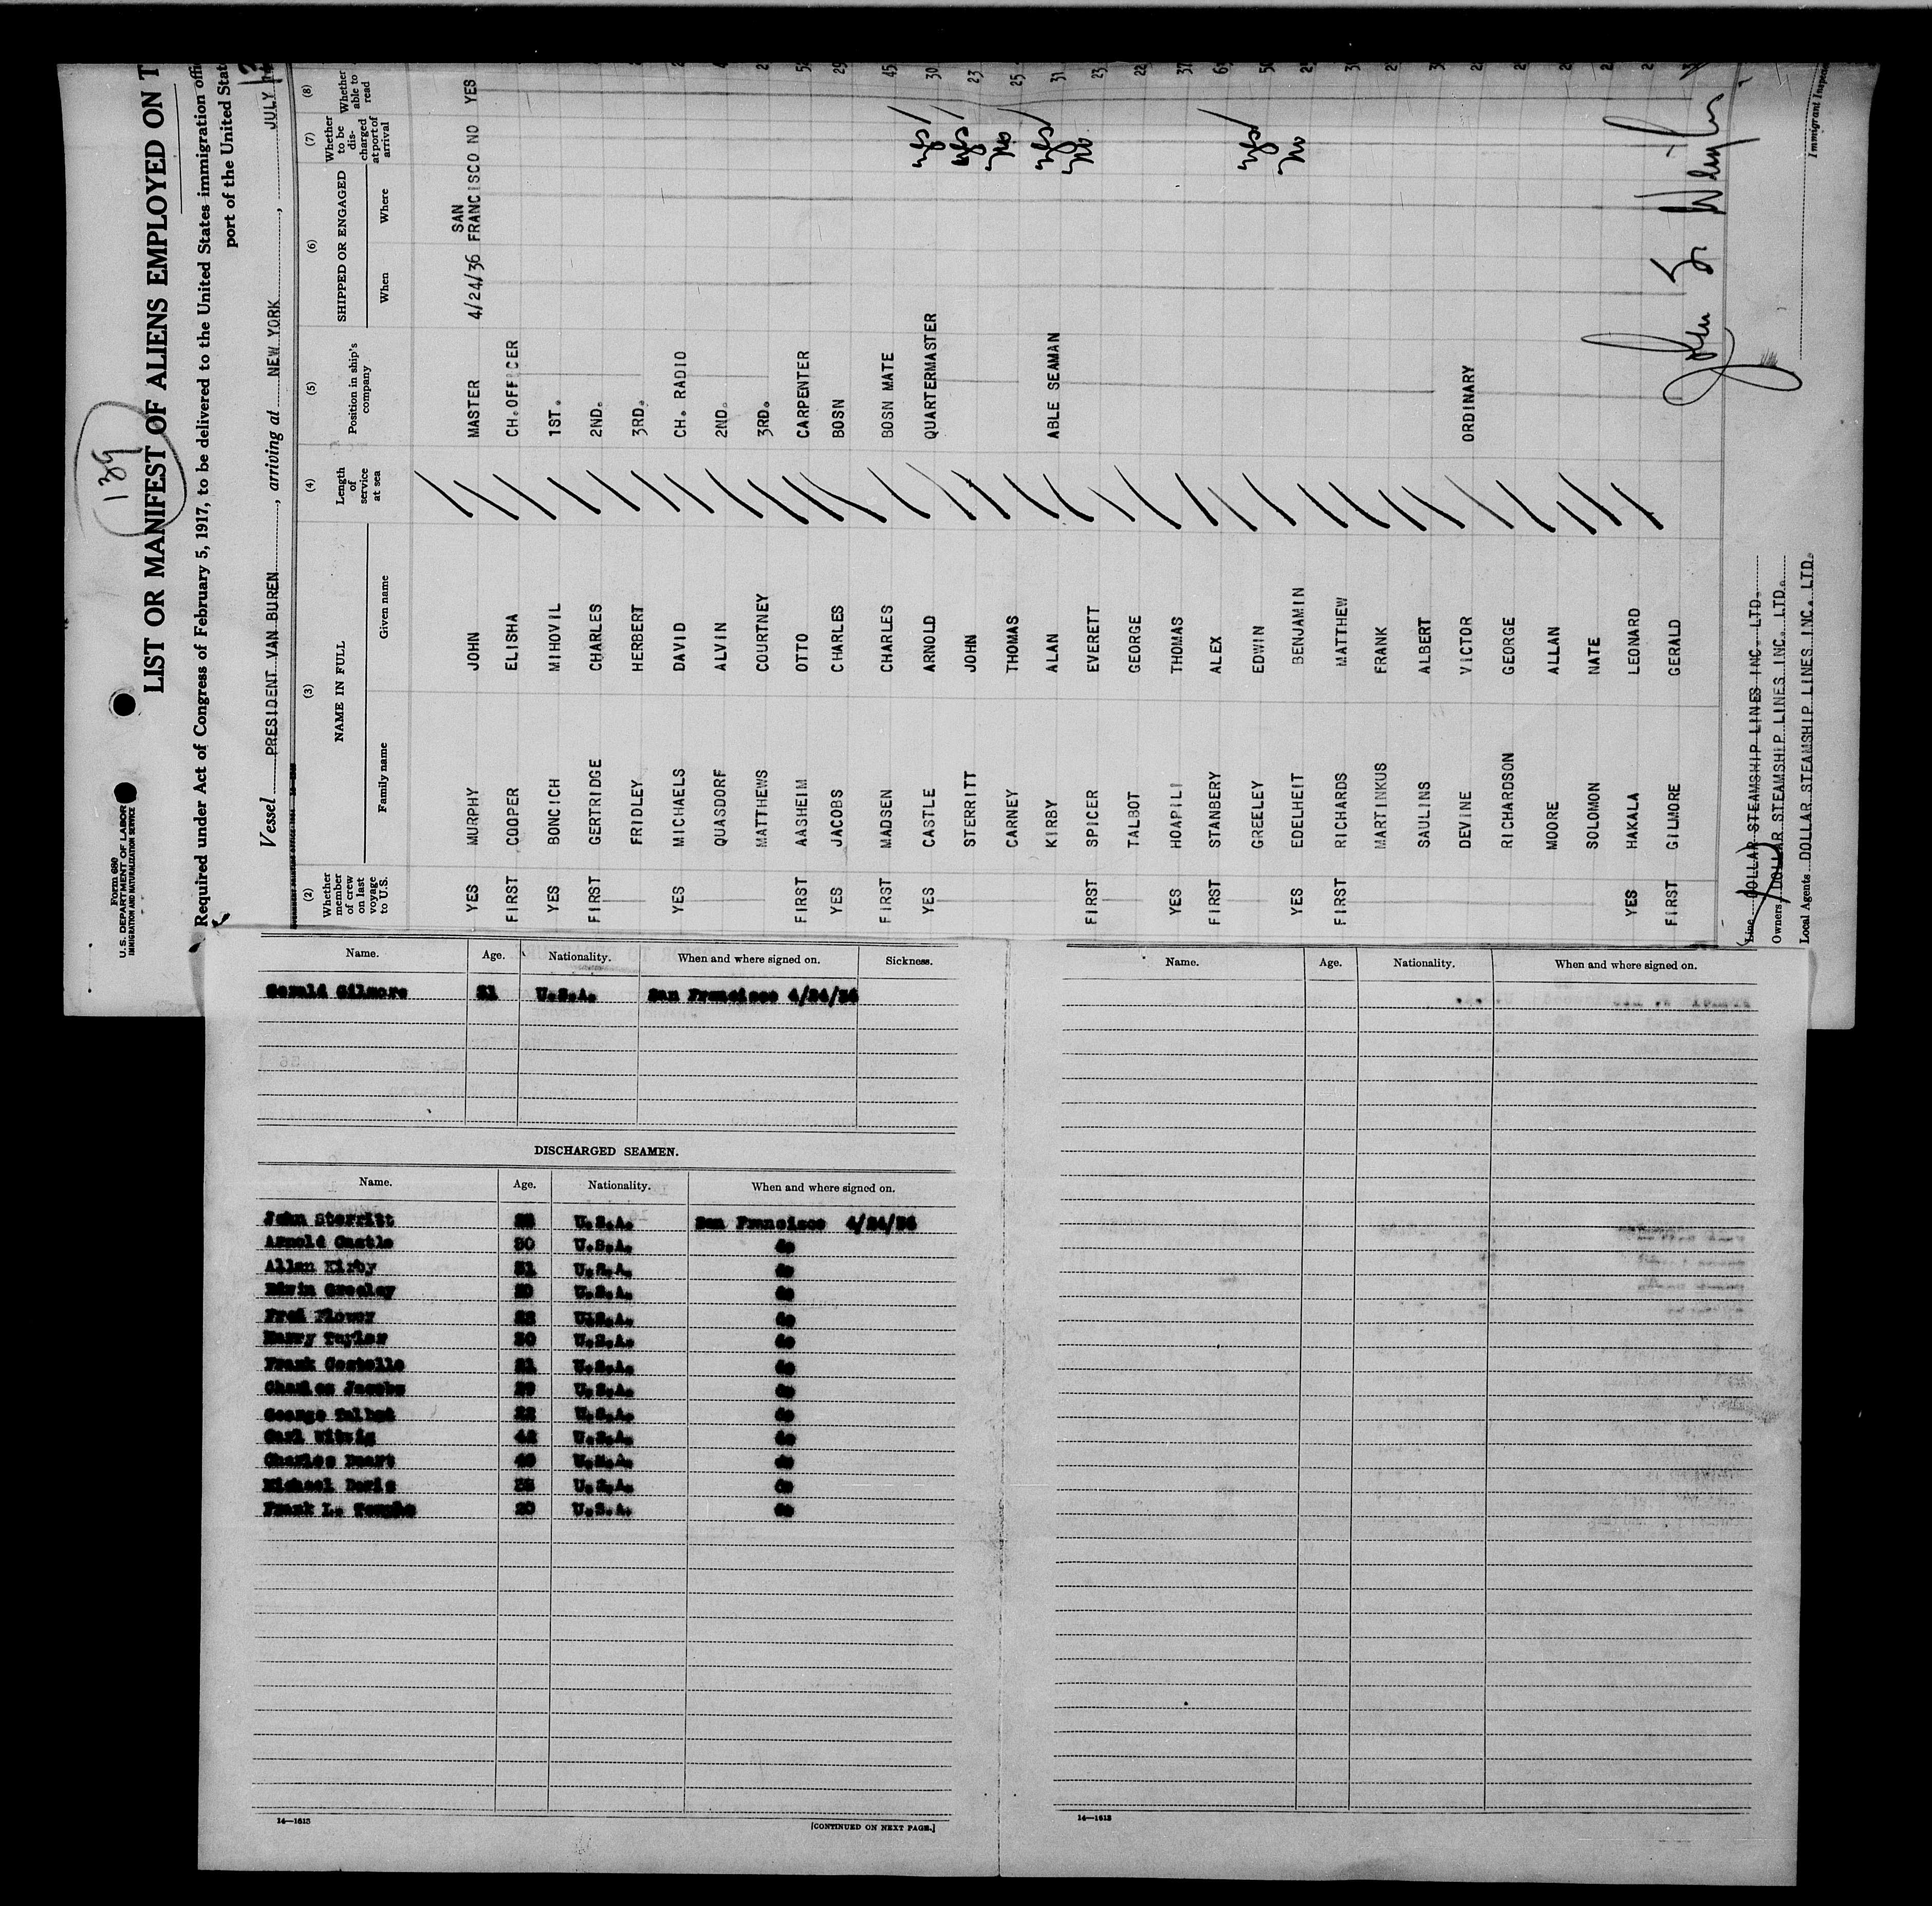 139
Form 680
U.S. DEPARTMENT OF LABOR
IMMIGRATION AND NATURALIZATION SERVICE
LIST OR MANIFEST OF ALIENS EMPLOYED ON T
Required under Act of Congress of February 5, 1917, to be delivered to the United States immigration offi
port of the United Stat
Vessel PRESIDENT VAN BUREN, arriving at NEW YORK, JULY
(2) (3) (4) (5) (6) (7) (8)
Whether member of crew on last voyage to U.S. NAME IN FULL Family name Given name Length of service at sea Position in ship's company SHIPPED OR ENGAGED When Where Whether to be discharged at port of arrival Whether able to read
YES MURPHY JOHN MASTER 4/24/36 SAN FRANCISCO NO YES
FIRST COOPER ELISHA CH.OFFICER
YES BONCICH MIHOVIL 1ST.
FIRST GERTRIDGE CHARLES 2ND.
FRIDLEY HERBERT 3RD.
YES MICHAELS DAVID CH. RADIO
QUASDORF ALVIN 2ND.
MATTHEWS COURTNEY 3RD.
FIRST AASHEIM OTTO CARPENTER
YES JACOBS CHARLES BOSN 29
FIRST MADSEN CHARLES BOSN MATE 45
YES CASTLE ARNOLD QUARTERMASTER yes 30
STERRITT JOHN yes 23
CARNEY THOMAS No 25
KIRBY ALAN ABLE SEAMAN yes 31
FIRST SPICER EVERETT No 23
TALBOT GEORGE 22
YES HOAPILI THOMAS 37
FIRST STANBERY ALEX
GREELEY EDWIN yes
YES EDELHEIT BENJAMIN No
FIRST RICHARDS MATTHEW
MARTINKUS FRANK
SAULINS ALBERT
DEVINE VICTOR ORDINARY
RICHARDSON GEORGE
MOORE ALLAN
SOLOMON NATE
YES HAKALA LEONARD
FIRST GILMORE GERALD
Line DOLLAR STEAMSHIP LINES INC. LTD.
Owners DOLLAR STEAMSHIP LINES INC. LTD.
Local Agents DOLLAR STEAMSHIP LINES INC. LTD.
John
Immigrant Inspe
Name. Age. Nationality. When and where signed on. Sickness.
Gerald Gilmore 21 U.S.A. San Francisco 4/24/36
DISCHARGED SEAMEN.
Name. Age. Nationality. When and where signed on.
John Sterritt 23 U.S.A. San Francisco 4/24/36
Arnold Castle 30 U.S.A. do
Allan Kirby 31 U.S.A. do
Edwin Greeley U.S.A. do
Fred Flower U.S.A. do
Harry Taylor 30 U.S.A. do
Frank Costello 21 U.S.A. do
Charles Jacobs 29 U.S.A. do
George Talbot 22 U.S.A. do
Carl Witwig 42 U.S.A. do
Charles Duart U.S.A. do
Michael Doris U.S.A. do
Frank L. 20 U.S.A. do
14—1613
[CONTINUED ON NEXT PAGE.]
Name. Age. Nationality. When and where signed on.
14—1613